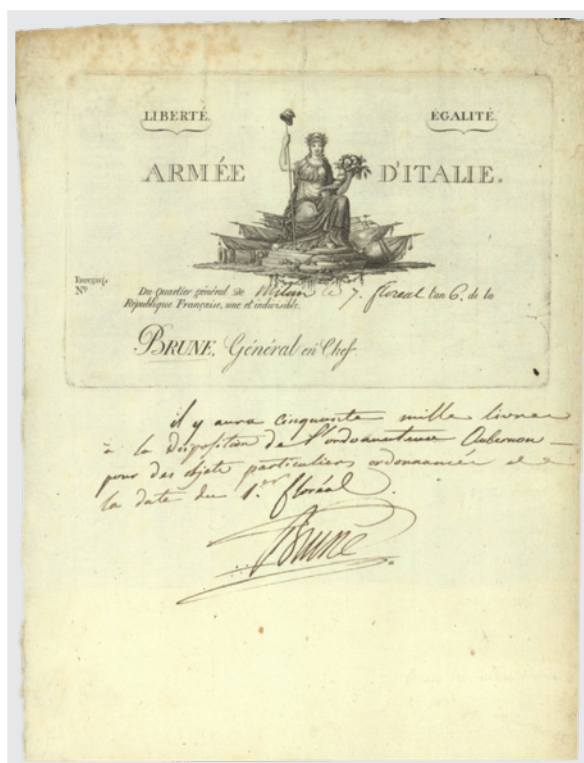 LIBERTÉ ÉGALITÉ
ARMÉE D'ITALIE.
Enregist.
Nº
Du Quartier général de Milan le 7. floreal l'an 6. de la
République Française, une et indivisible.
BRUNE, Général en Chef
il y aura cinquante mille livres
à la disposition de l'ordonnateur Aubernon
pour des objets particuliers ordonnancés
la date du 1.er floréal.
Brune